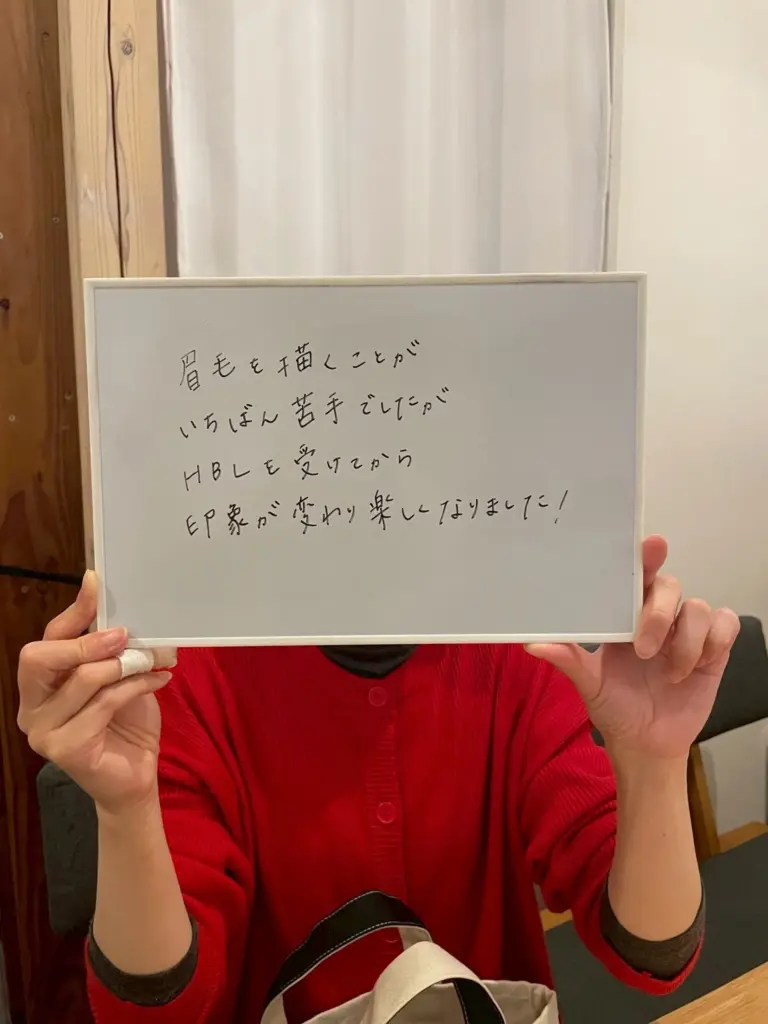 眉毛を描くことが
いちばん苦手でしたが
HBLを受けてから
印象が変わり楽しくなりました!